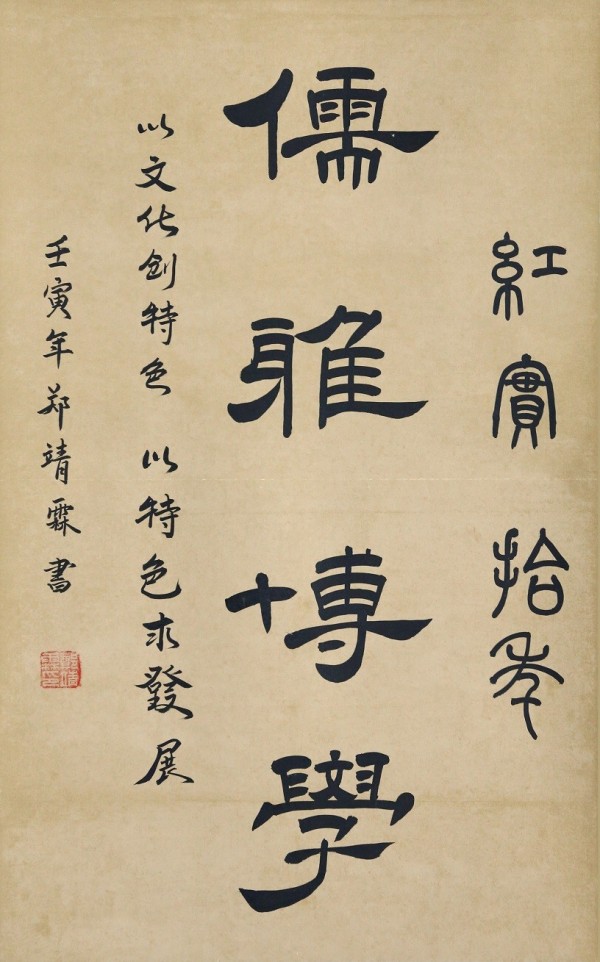 紅實拾年
儒雅博學
以文化創特色 以特色求發展
壬寅年郑靖霖書